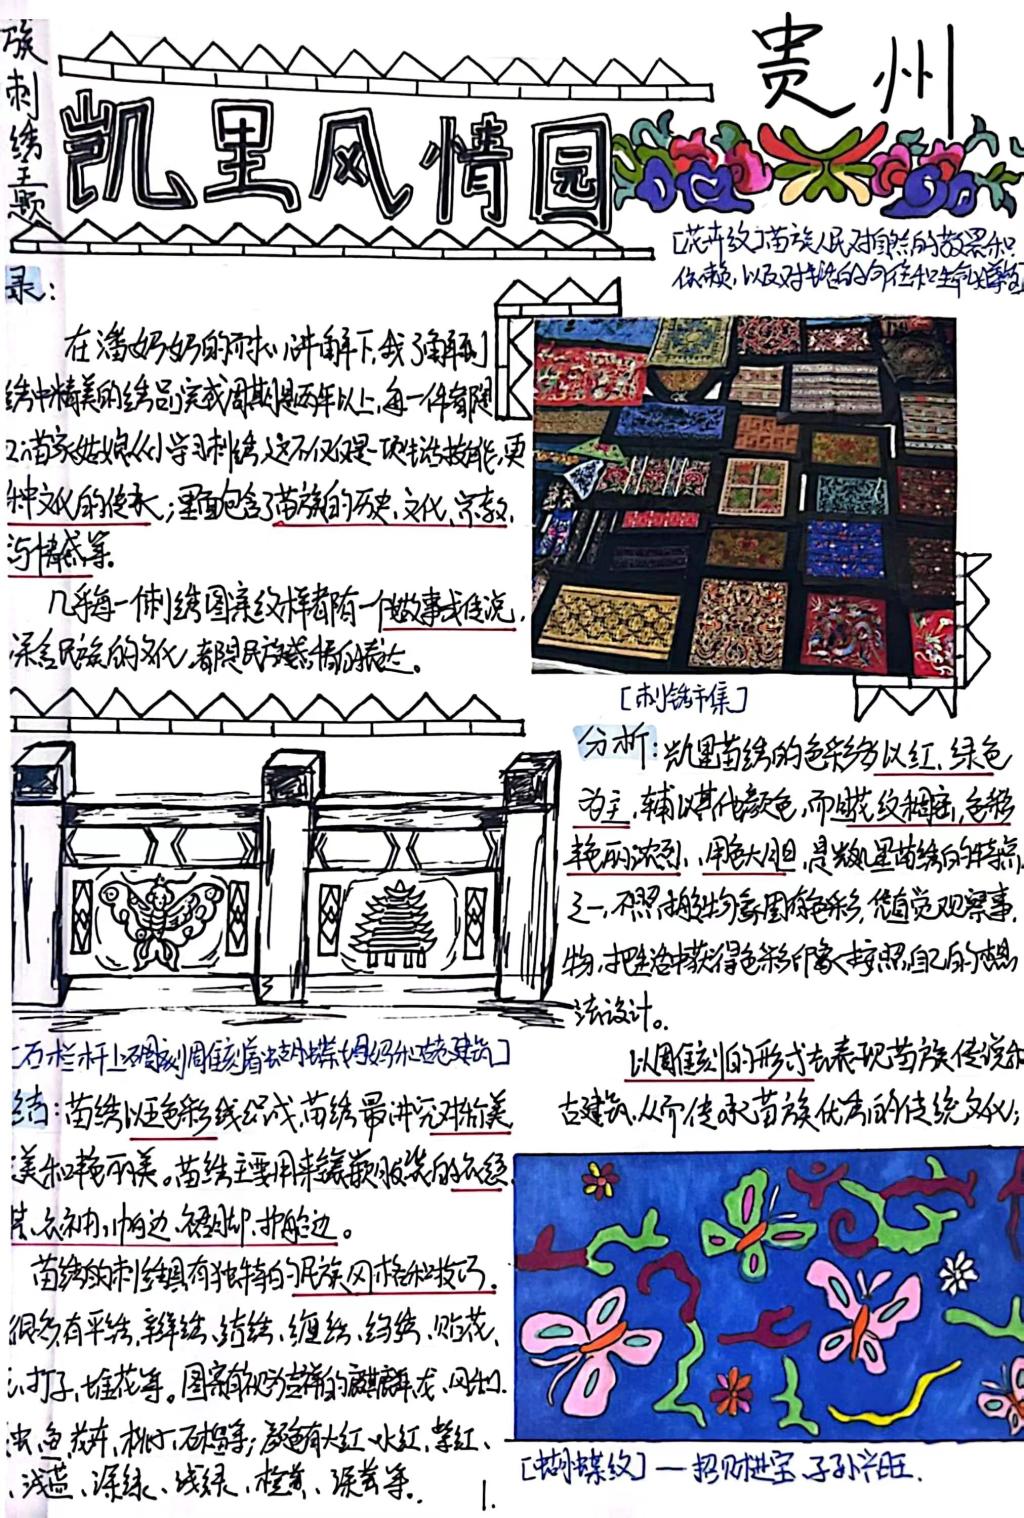 族刺绣主题
贵州
凯里风情园
[花卉纹]苗族人民对自然的敬畏和
依赖,以及对生活的向往和生命
录:
在潘奶奶的耐心讲解下,我了解到
绣中精美的绣品完成周期是两年以上,每一件都是
苗家姑娘从小学习刺绣,这不仅仅是一项生活技能,更
种文化的传承;里面包含了苗族的历史、文化、宗教、
与情感等。
几乎每一件刺绣图案纹样都有一个故事或传说,
深含民族的文化,都是民族情的表达。
[刺绣市集]
分析:凯里苗绣的色彩多以红、绿色
为主,辅以其他颜色,而且花纹稠密,色彩
艳丽浓烈、用色大胆,是凯里苗绣的特点
之一,不照搬物象固有色彩,凭直觉观察事
物,把生活中获得色彩印象按照自己的想
法设计。
[石栏杆上雕刻着蝴蝶妈妈和古建筑]
以雕刻的形式去表现苗族传说和
古建筑,从而传承苗族优秀的传统文化;
结:苗绣以五色彩线织成,苗绣最讲究对称美
美和艳丽美。苗绣主要用来镶嵌服装的衣领
衣袖、巾边、裙脚、护船边。
苗绣的刺绣具有独特的民族风格和技巧。
很多有平绣、辫绣、结绣、缠绣、绉绣、贴花、
打子、堆花等。图案有视为吉祥的麒麟、龙、凤和
虫、鱼、花卉、桃子、石榴等;颜色有大红、水红、紫红、
、浅蓝、深绿、浅绿、橙黄、深黄等。
[蝴蝶纹]—招财进宝 子孙兴旺.
1.